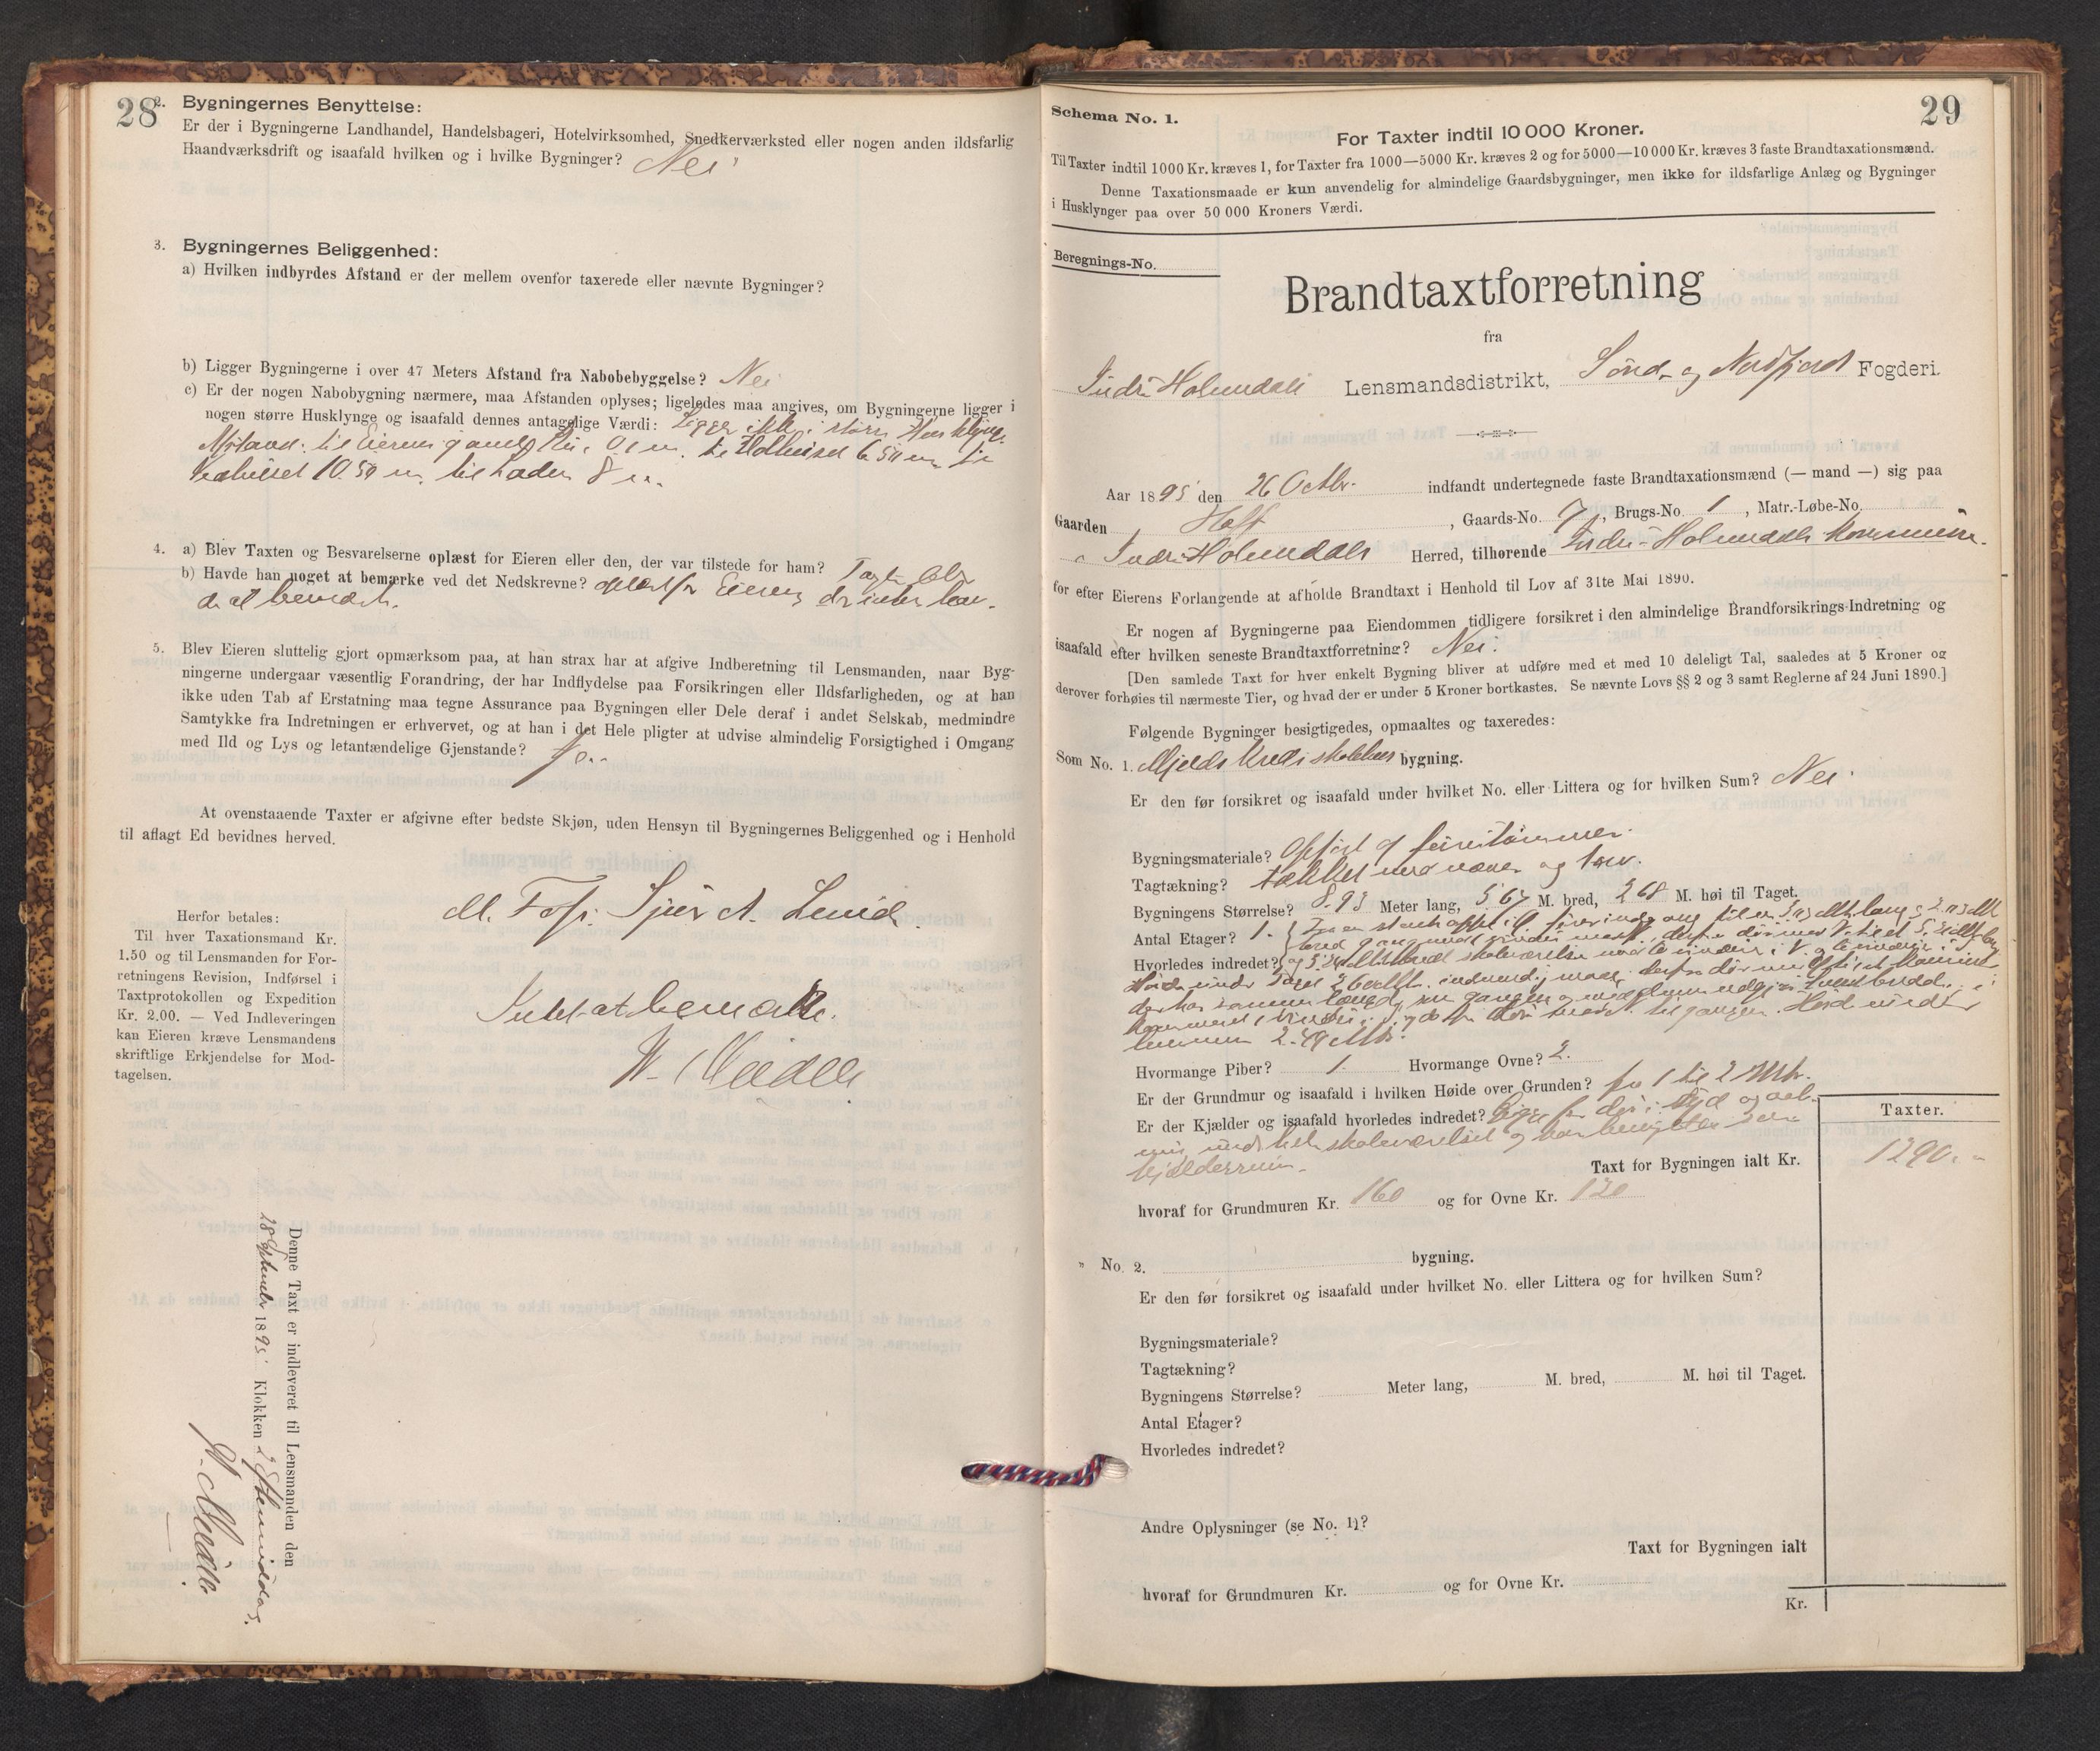 28
2. Bygningernes Benyttelse:
Er der i Bygningerne Landhandel, Handelsbageri, Hotelvirksomhed, Snedkerværksted eller nogen anden ildsfarlig
Haandværksdrift og isaafald hvilken og i hvilke Bygninger? Nei
3. Bygningernes Beliggenhed:
a) Hvilken indbyrdes Afstand er der mellem ovenfor taxerede eller nævnte Bygninger?
b) Ligger Bygningerne i over 47 Meters Afstand fra Nabobebyggelse? Nei
c) Er der nogen Nabobygning nærmere, maa Afstanden oplyses; ligeledes maa angives, om Bygningerne ligger i
nogen større Husklynge og isaafald dennes antagelige Værdi: Ligger ikke i større Husklynge.
Afstand til Eierens gamle
10.50 m, til Laden 8 m.
4. a) Blev Taxten og Besvarelserne oplæst for Eieren eller den, der var tilstede for ham? Taxten blev
b) Havde han noget at bemærke ved det Nedskrevne? oplæst for Eieren der intet hav-
de at bemærke.
5. Blev Eieren sluttelig gjort opmærksom paa, at han strax har at afgive Indberetning til Lensmanden, naar Byg-
ningerne undergaar væsentlig Forandring, der har Indflydelse paa Forsikringen eller Ildsfarligheden, og at han
ikke uden Tab af Erstatning maa tegne Assurance paa Bygningen eller Dele deraf i andet Selskab, medmindre
Samtykke fra Indretningen er erhvervet, og at han i det Hele pligter at udvise almindelig Forsigtighed i Omgang
med Ild og Lys og letantændelige Gjenstande? Ja.
At ovenstaaende Taxter er afgivne efter bedste Skjøn, uden Hensyn til Bygningernes Beliggenhed og i Henhold
til aflagt Ed bevidnes herved.
Herfor betales:
Til hver Taxationsmand Kr.
1.50 og til Lensmanden for For-
retningens Revision, Indførsel i
Taxtprotokollen og Expedition
Kr. 2.00. — Ved Indleveringen
kan Eieren kræve Lensmandens
skriftlige Erkjendelse for Mod-
tagelsen.
Intet at bemærke.
Denne Taxt er indleveret til Lensmanden den
1895 Klokken 2 Eftermiddag.
Schema No. 1.
29
For Taxter indtil 10 000 Kroner.
Til Taxter indtil 1000 Kr. kræves 1, for Taxter fra 1000—5000 Kr. kræves 2 og for 5000—10 000 Kr. kræves 3 faste Brandtaxationsmænd.
Denne Taxationsmaade er kun anvendelig for almindelige Gaardsbygninger, men ikke for ildsfarlige Anlæg og Bygninger
i Husklynger paa over 50 000 Kroners Værdi.
Beregnings-No.
Brandtaxtforretning
fra
Indre Holmedals Lensmandsdistrikt, Sønd- og Nordfjord Fogderi.
Aar 1895 den 26 Octbr. indfandt undertegnede faste Brandtaxationsmænd (— mand —) sig paa
Gaarden Hoff, Gaards-No. , Brugs-No. 1, Matr.-Løbe-No.
i Indre Holmedals Herred, tilhørende Indre Holmedals Kommune
for efter Eierens Forlangende at afholde Brandtaxt i Henhold til Lov af 31te Mai 1890.
Er nogen af Bygningerne paa Eiendommen tidligere forsikret i den almindelige Brandforsikrings-Indretning og
isaafald efter hvilken seneste Brandtaxtforretning? Nei.
[Den samlede Taxt for hver enkelt Bygning bliver at udføre med et med 10 deleligt Tal, saaledes at 5 Kroner og
derover forhøies til nærmeste Tier, og hvad der er under 5 Kroner bortkastes. Se nævnte Lovs §§ 2 og 3 samt Reglerne af 24 Juni 1890.]
Følgende Bygninger besigtigedes, opmaaltes og taxeredes:
Som No. 1. bygning.
Er den før forsikret og isaafald under hvilket No. eller Littera og for hvilken Sum? Nei.
Bygningsmateriale? Opført af furutømmer.
Tagtækning? tækket med næver og torv.
Bygningens Størrelse? 8.93 Meter lang, 5.67 M. bred, 2.68 M. høi til Taget.
Antal Etager? 1.
Hvorledes indredet?
Hvormange Piber? 1. Hvormange Ovne? 2.
Er der Grundmur og isaafald i hvilken Høide over Grunden? fra 1 til 2 Mtr.
Er der Kjælder og isaafald hvorledes indredet?
kjælderrum.
Taxter.
Taxt for Bygningen ialt Kr. 1290.
hvoraf for Grundmuren Kr. 160 og for Ovne Kr. 120
" No. 2. bygning.
Er den før forsikret og isaafald under hvilket No. eller Littera og for hvilken Sum?
Bygningsmateriale?
Tagtækning?
Bygningens Størrelse? Meter lang, M. bred, M. høi til Taget.
Antal Etager?
Hvorledes indredet?
Andre Oplysninger (se No. 1)?
Taxt for Bygningen ialt
hvoraf for Grundmuren Kr. og for Ovne Kr.
Kr.